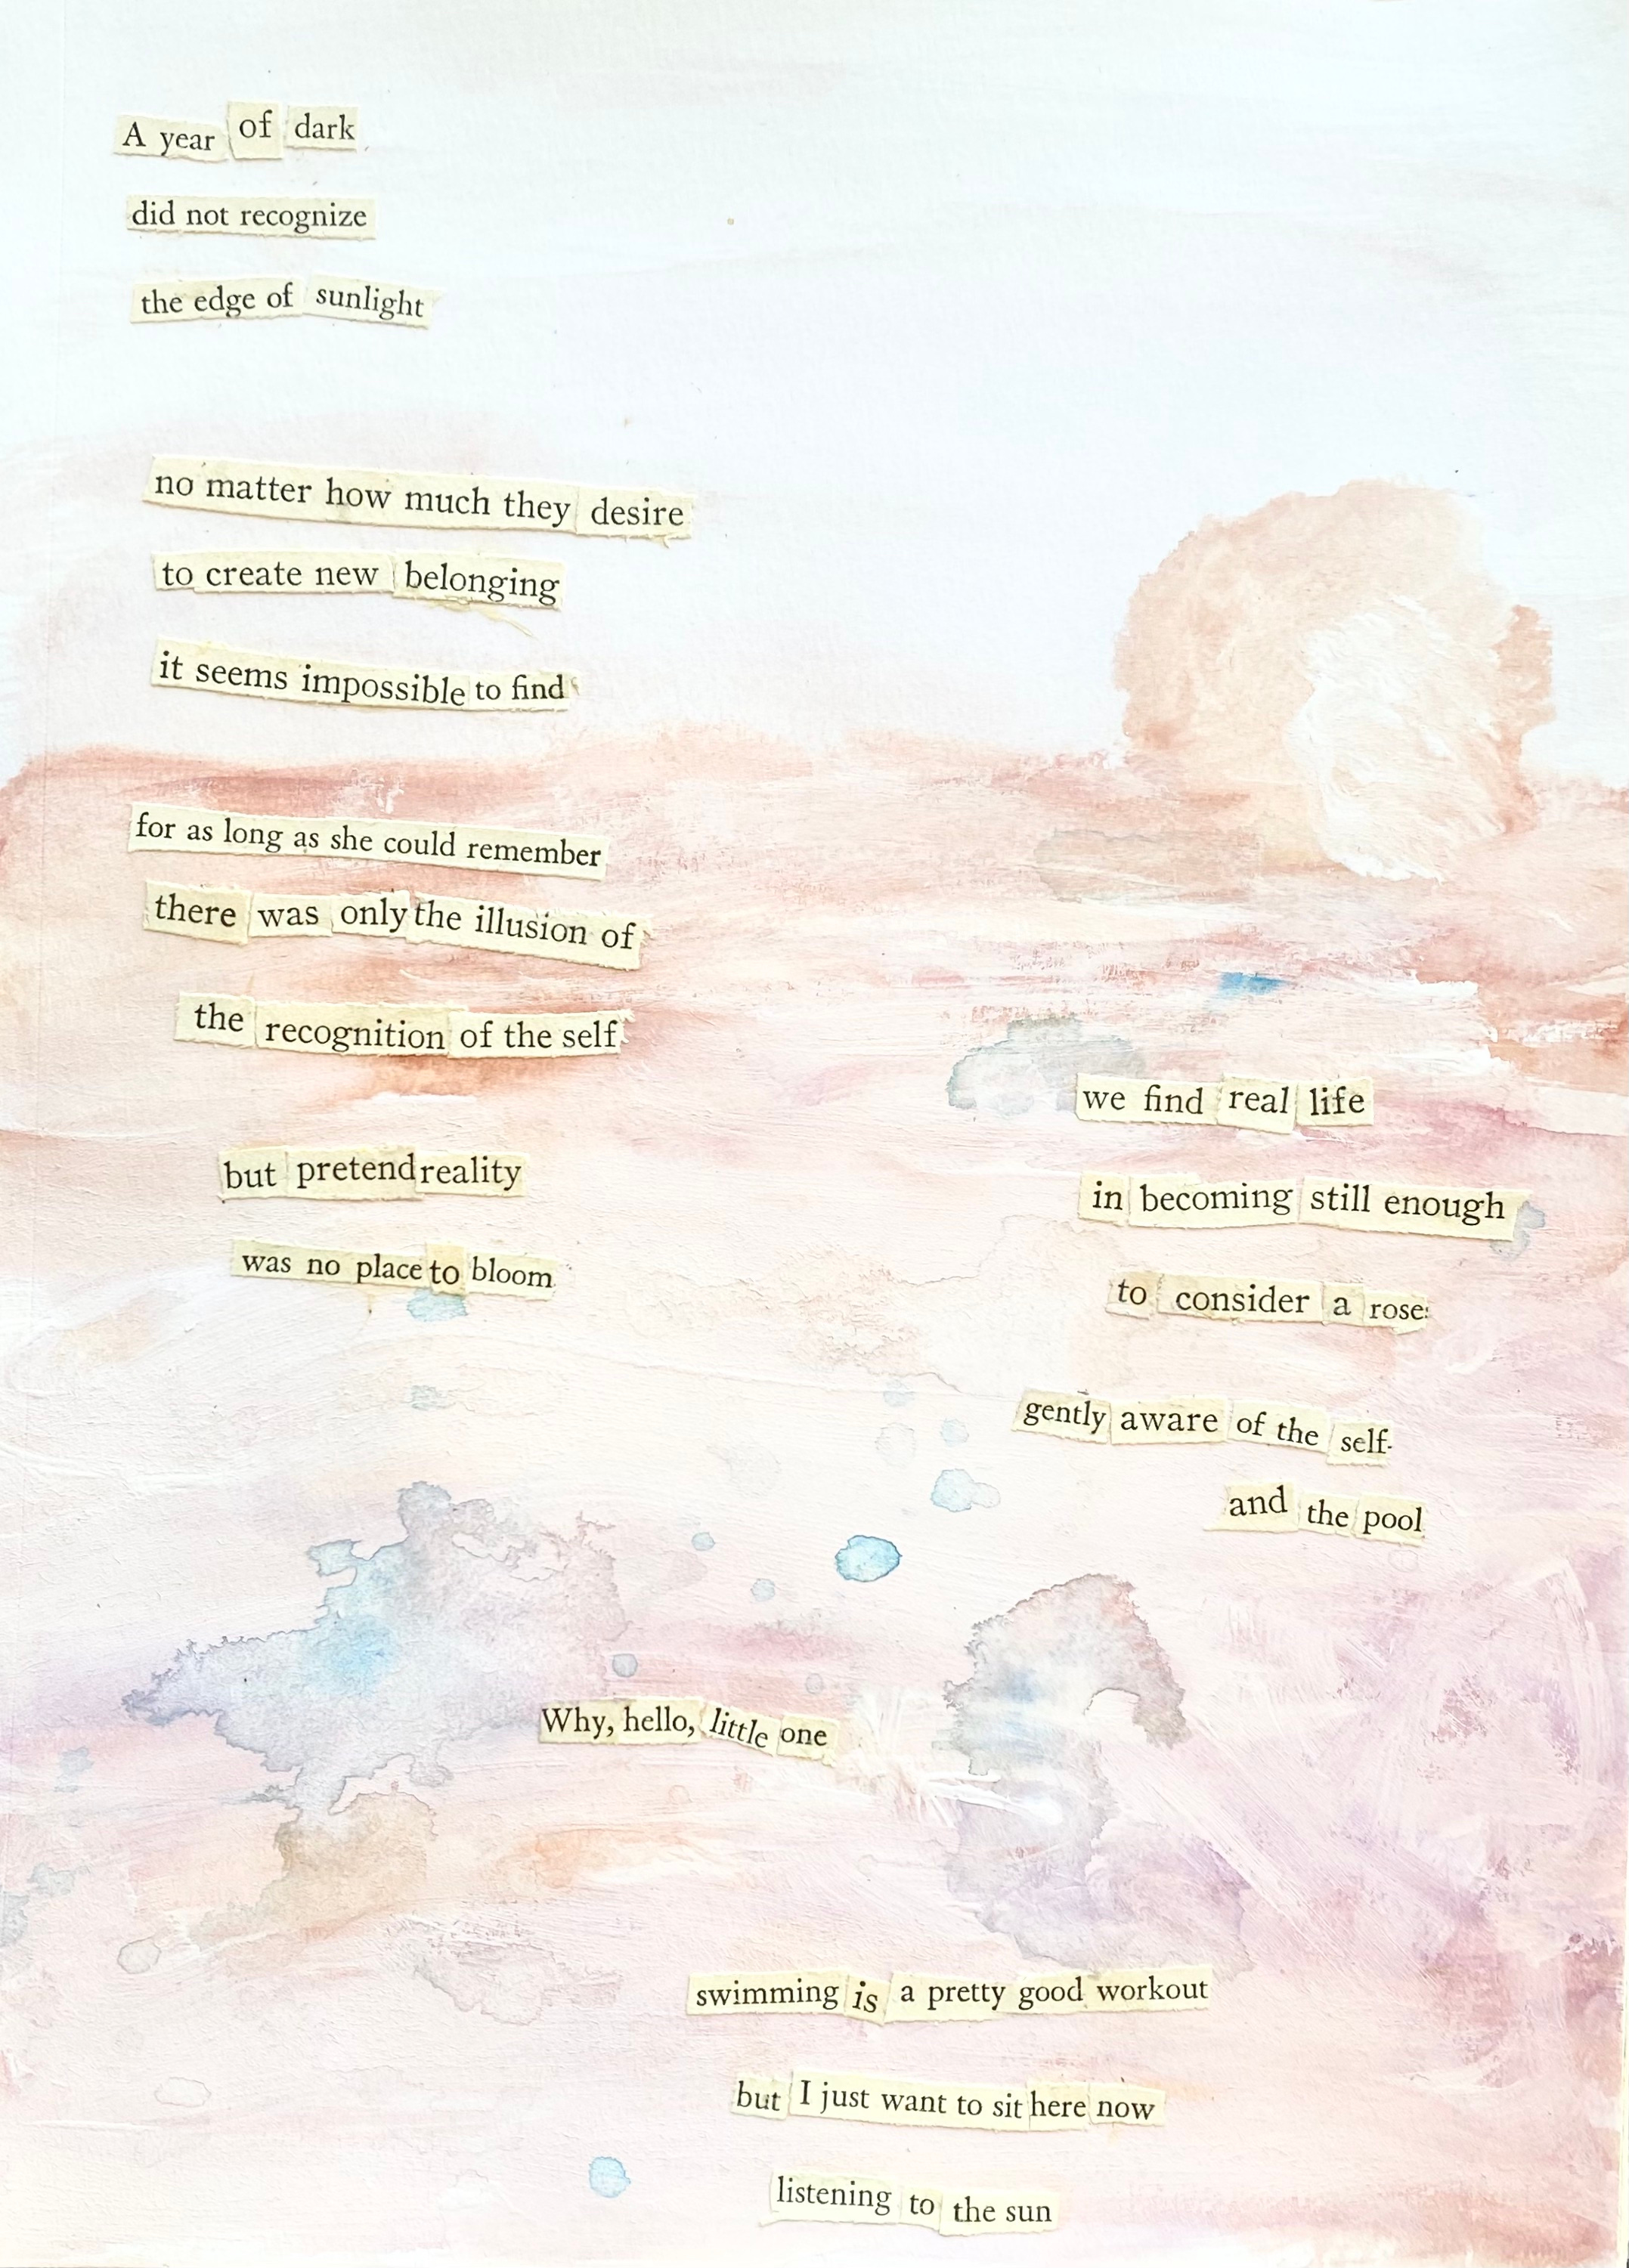 A year of dark
did not recognize
the edge of sunlight
no matter how much they desire
to create new belonging
it seems impossible to find
for as long as she could remember
there was only the illusion of
the recognition of the self
but pretend reality
was no place to bloom
we find real life
in becoming still enough
to consider a rose
gently aware of the self-
and the pool
Why, hello, little one
swimming is a pretty good workout
but I just want to sit here now
listening to the sun